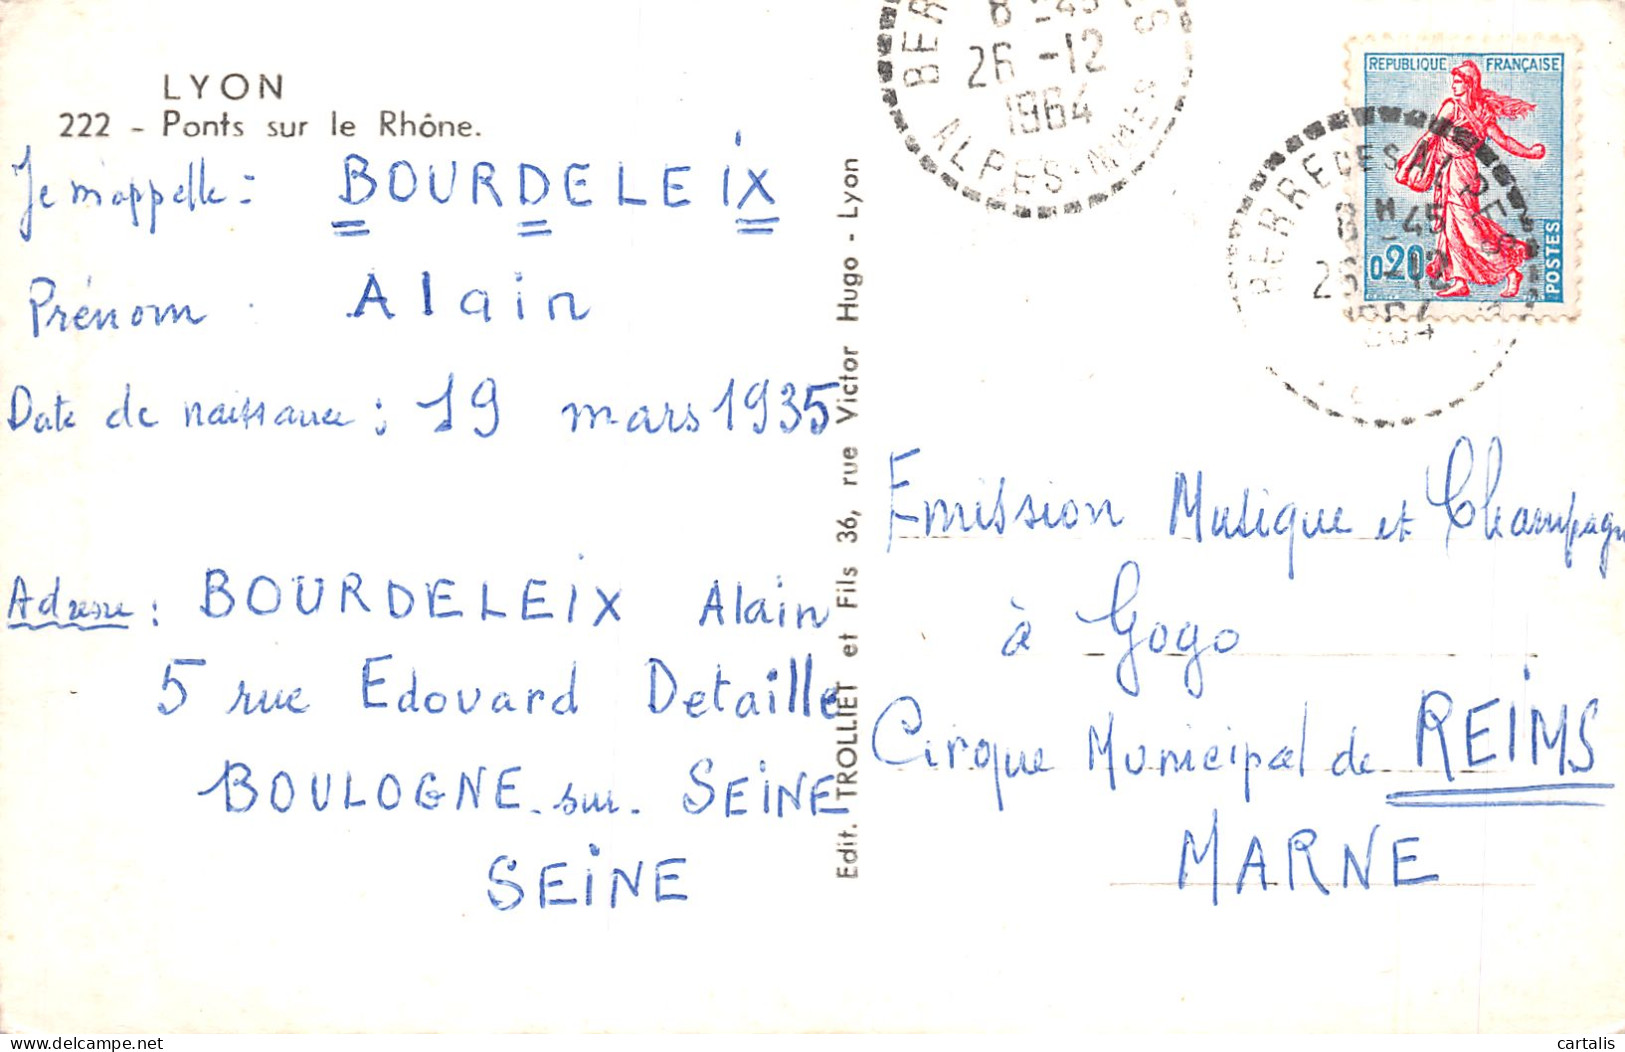 LYON
222 - Ponts sur le Rhône.
Je m'appelle : BOURDELEIX
Prénom . Alain
Date de naissance : 19 mars 1935
Adresse : BOURDELEIX Alain
5 rue Edouard Detaille
BOULOGNE - sur - SEINE
SEINE
Edit. TROLLIET et Fils 36, rue Victor Hugo - Lyon
BER
8 -45
26 -12
1964
ALPES-MMES
REPUBLIQUE FRANÇAISE
0,20
POSTES
BERRE DES ALPES
8H 45
26 -12
1964
Emission Musique et Champagn
à Gogo
Cirque Municipal de REIMS
MARNE
cartalis